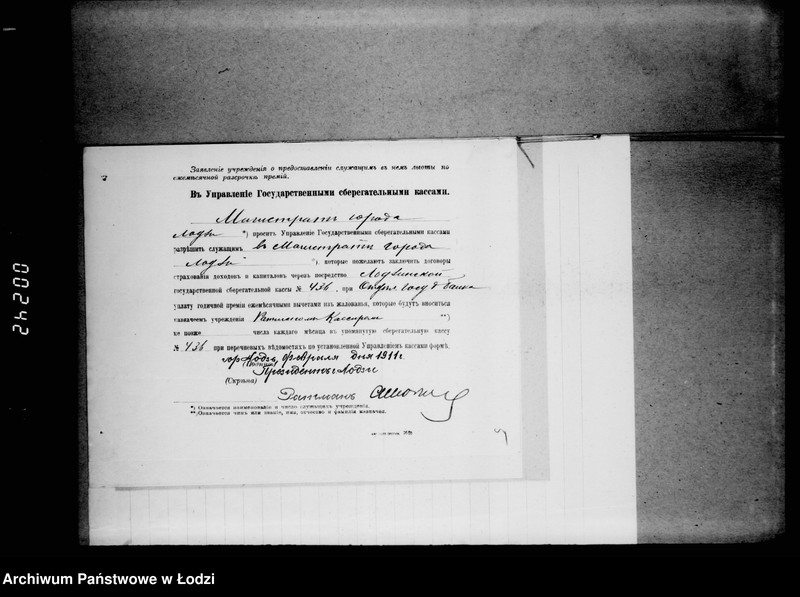 Заявленіе учрежденія о предоставленіи служащимъ въ немъ льготы по
ежемѣсячной разсрочкѣ премій.
Въ Управленіе Государственными сберегательными кассами.
Магистратъ города
Лодзи *) проситъ Управленіе Государственными сберегательными кассами
разрѣшить служащимъ въ Магистратѣ города
Лодзи *), которые пожелаютъ заключить договоры
страхованія доходовъ и капиталовъ черезъ посредство Лодзинской
государственной сберегательной кассы № 436, при Отдѣл. Госуд. Банка
уплату годичной преміи ежемѣсячными вычетами изъ жалованья, которые будутъ вноситься
казначеемъ учрежденія Кассиромъ **)
не позже числа каждаго мѣсяца въ упомянутую сберегательную кассу
№ 436 при перечневыхъ вѣдомостяхъ по установленной Управленіемъ кассами формѣ.
гор. Лодзь, Февраля дня 1911 г.
(Подпись)
Президентъ г. Лодзи
(Скрѣпа)
*) Означается наименованіе и число служащихъ учрежденія.
**) Означается чинъ или званіе, имя, отчество и фамилія казначея.
24200
Archiwum Państwowe w Łodzi